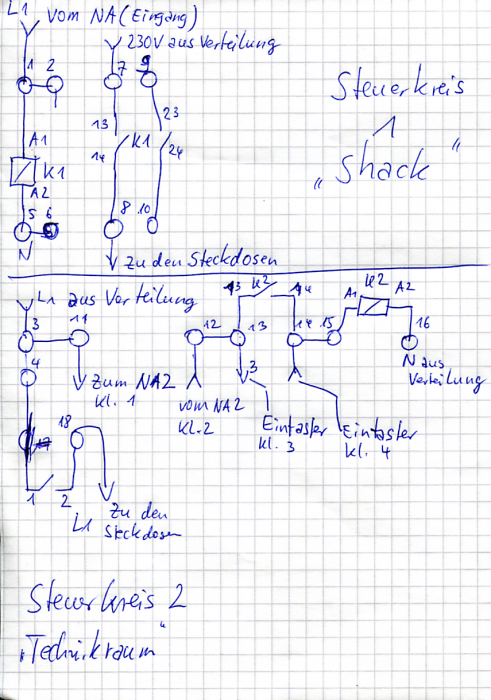 L1 vom NA (Eingang)
230V aus Verteilung
1 2 7 9
23
A1 13
K1 14 K1 24
A2
5 6 8 10
N
zu den Steckdosen
Steuerkreis
1
„Shack"
L1 aus Verteilung
3 11
4
Zum NA2
Kl. 1
18
17
1 2
L1 Zu den
Steckdosen
13 K2 14
12 13 14 15
A1 K2 A2
16
N aus
Verteilung
vom NA2
Kl. 2
3
Eintaster
Kl. 3
Eintaster
Kl. 4
Steuerkreis 2
„Technikraum"